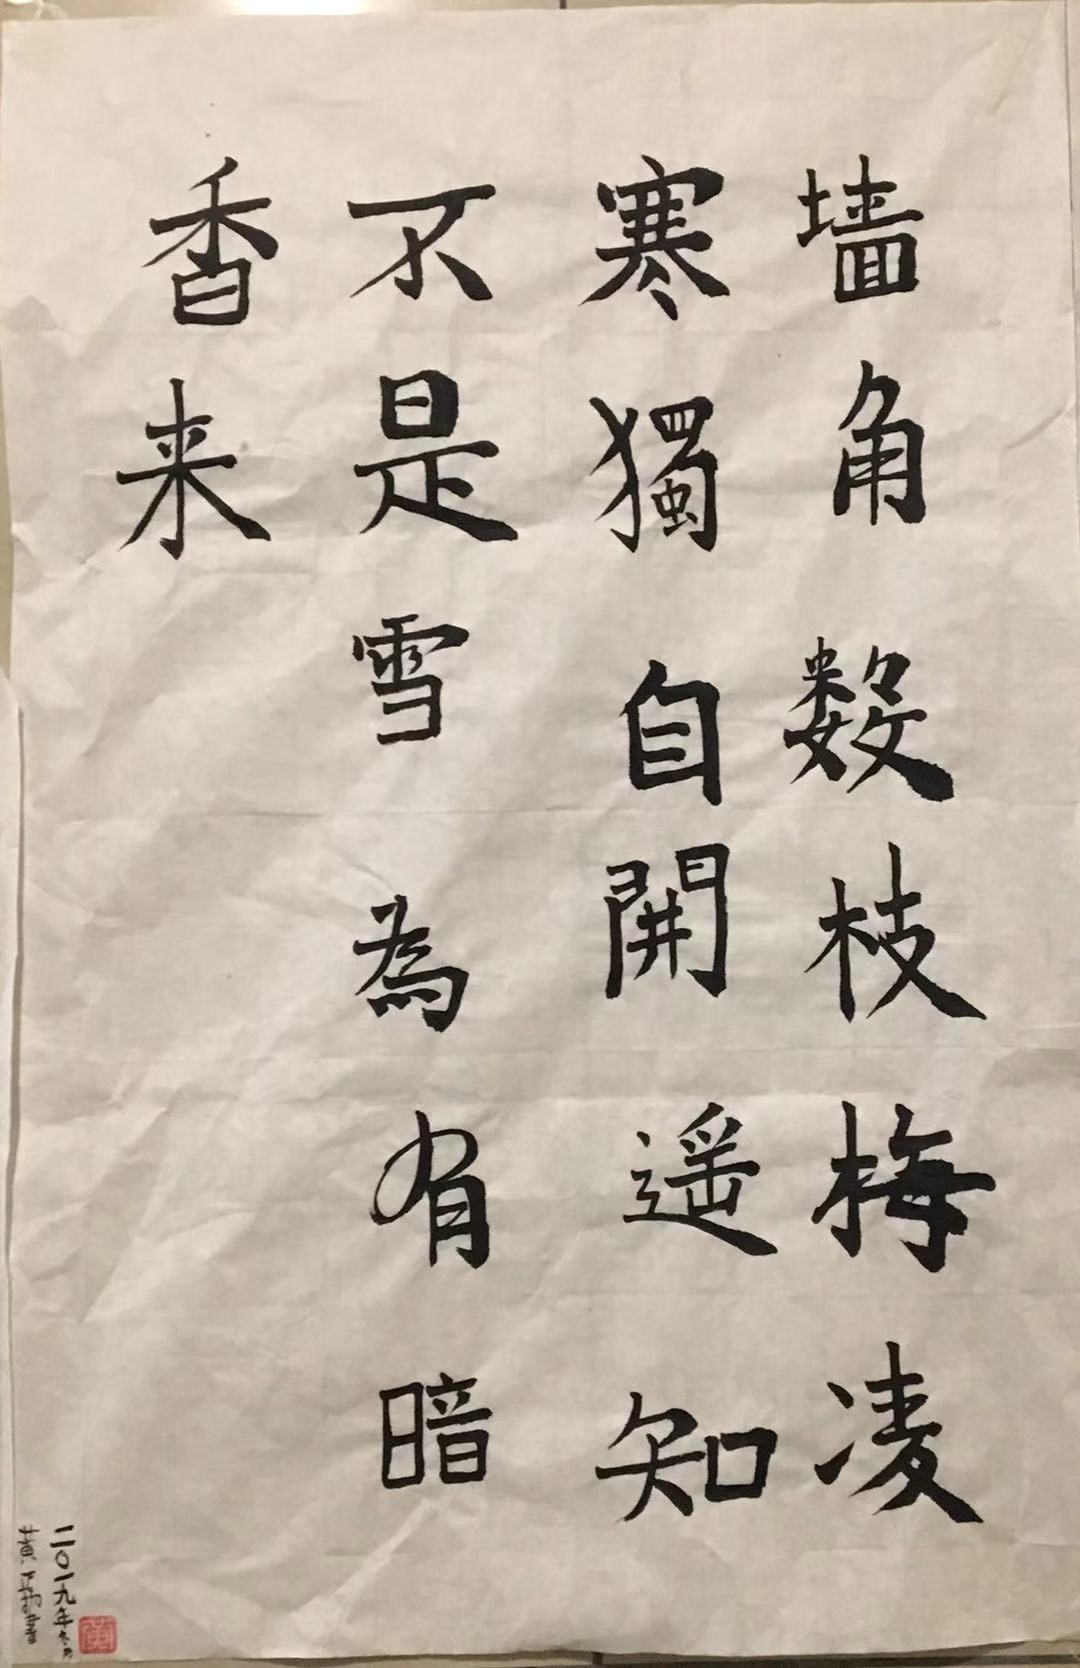 墙角数枝梅凌
寒獨自開遥知
不是雪為有暗
香来
二〇一九年冬月
黄
書